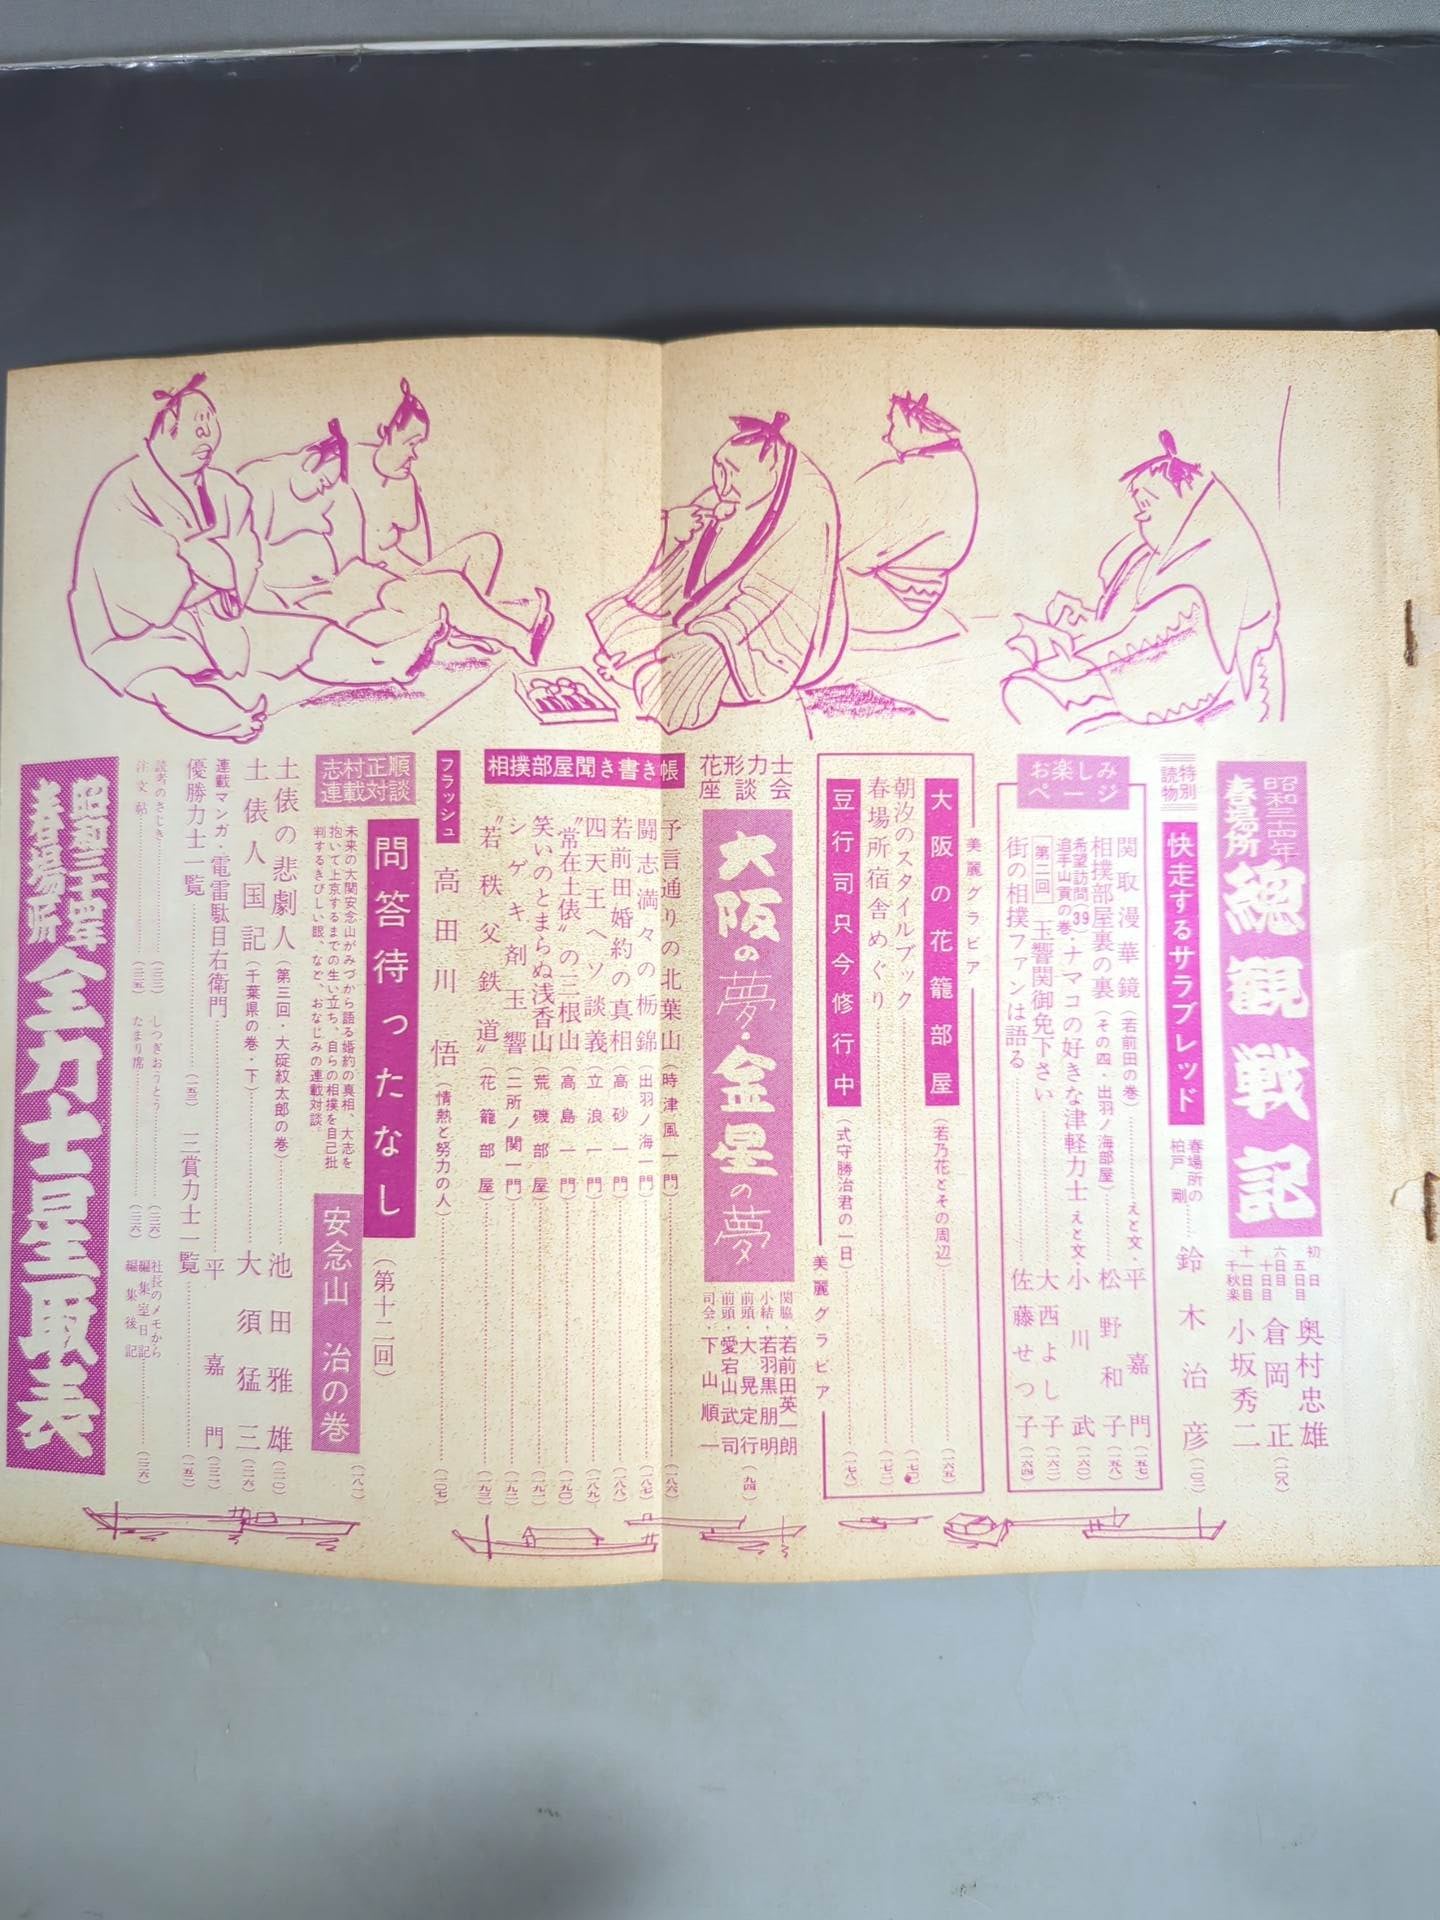 昭和三十四年
春場所
總観戦記
初日
五日目
奥村忠雄
六日目
十日目
倉岡正
十一日目
千秋楽
小坂秀二
(一〇八)
特別
読物
快走するサラブレッド
春場所の
柏戸 剛
鈴木治彦
(一〇二)
お楽しみ
ページ
関取漫華鏡(若前田の巻)
えと文・平嘉門(一五七)
相撲部屋裏の裏(その四・出羽ノ海部屋)
松野和子(一五八)
希望訪問(39)
追手山貢の巻
ナマコの好きな津軽力士
えと文・小川武(一六〇)
第二回
玉響関御免下さい
大西よし子(一六二)
街の相撲ファンは語る
佐藤せつ子(一六四)
美麗グラビア
大阪の花籠部屋
(若乃花とその周辺)
(一六五)
朝汐のスタイルブック
(一七〇)
春場所宿舎めぐり
(一七二)
豆行司只今修行中
(式守勝治君の一日)
(一七八)
美麗グラビア
花形力士
座談会
大阪の夢・金星の夢
関脇・若前田英一朗
小結・若羽黒朋明
前頭・大晃定行
前頭・愛宕山武司
司会・下山順一
(九四)
相撲部屋聞き書き帳
予言通りの北葉山(時津風一門)
(一八六)
闘志満々の栃錦(出羽ノ海一門)
(一八七)
若前田婚約の真相(高砂一門)
(一八八)
四天王ヘソ談義(立浪一門)
(一八九)
〝常在土俵〟の三根山(高島一門)
(一九〇)
笑いのとまらぬ浅香山(荒磯部屋)
(一九一)
シゲキ剤玉響(二所ノ関一門)
(一九二)
〝若秩父鉄道〟(花籠部屋)
(一九三)
フラッシュ
高田川 悟(情熱と努力の人)
(一〇七)
志村正順
連載対談
問答待ったなし
(第十二回)
未来の大関安念山がみづから語る婚約の真相、大志を
抱いて上京するまでの生い立ち、自らの相撲を自己批
判するきびしい眼、など、おなじみの連載対談。
安念山 治の巻
(一八一)
土俵の悲劇人(第三回・大碇紋太郎の巻)
池田雅雄
(二一〇)
土俵人国記(千葉県の巻・下)
大須猛三
(二一六)
連載マンガ・電雷駄目右衛門
平嘉門
(二二一)
優勝力士一覧
(一五二)
三賞力士一覧
(一五二)
読者のさじき
(二三二)
しつぎおうとう
(二三六)
社長のメモから
編集室日記
注文帖
(二三五)
たまり席
(二三六)
編集後記
(二三六)
昭和三十四年
春場所
全力士星取表